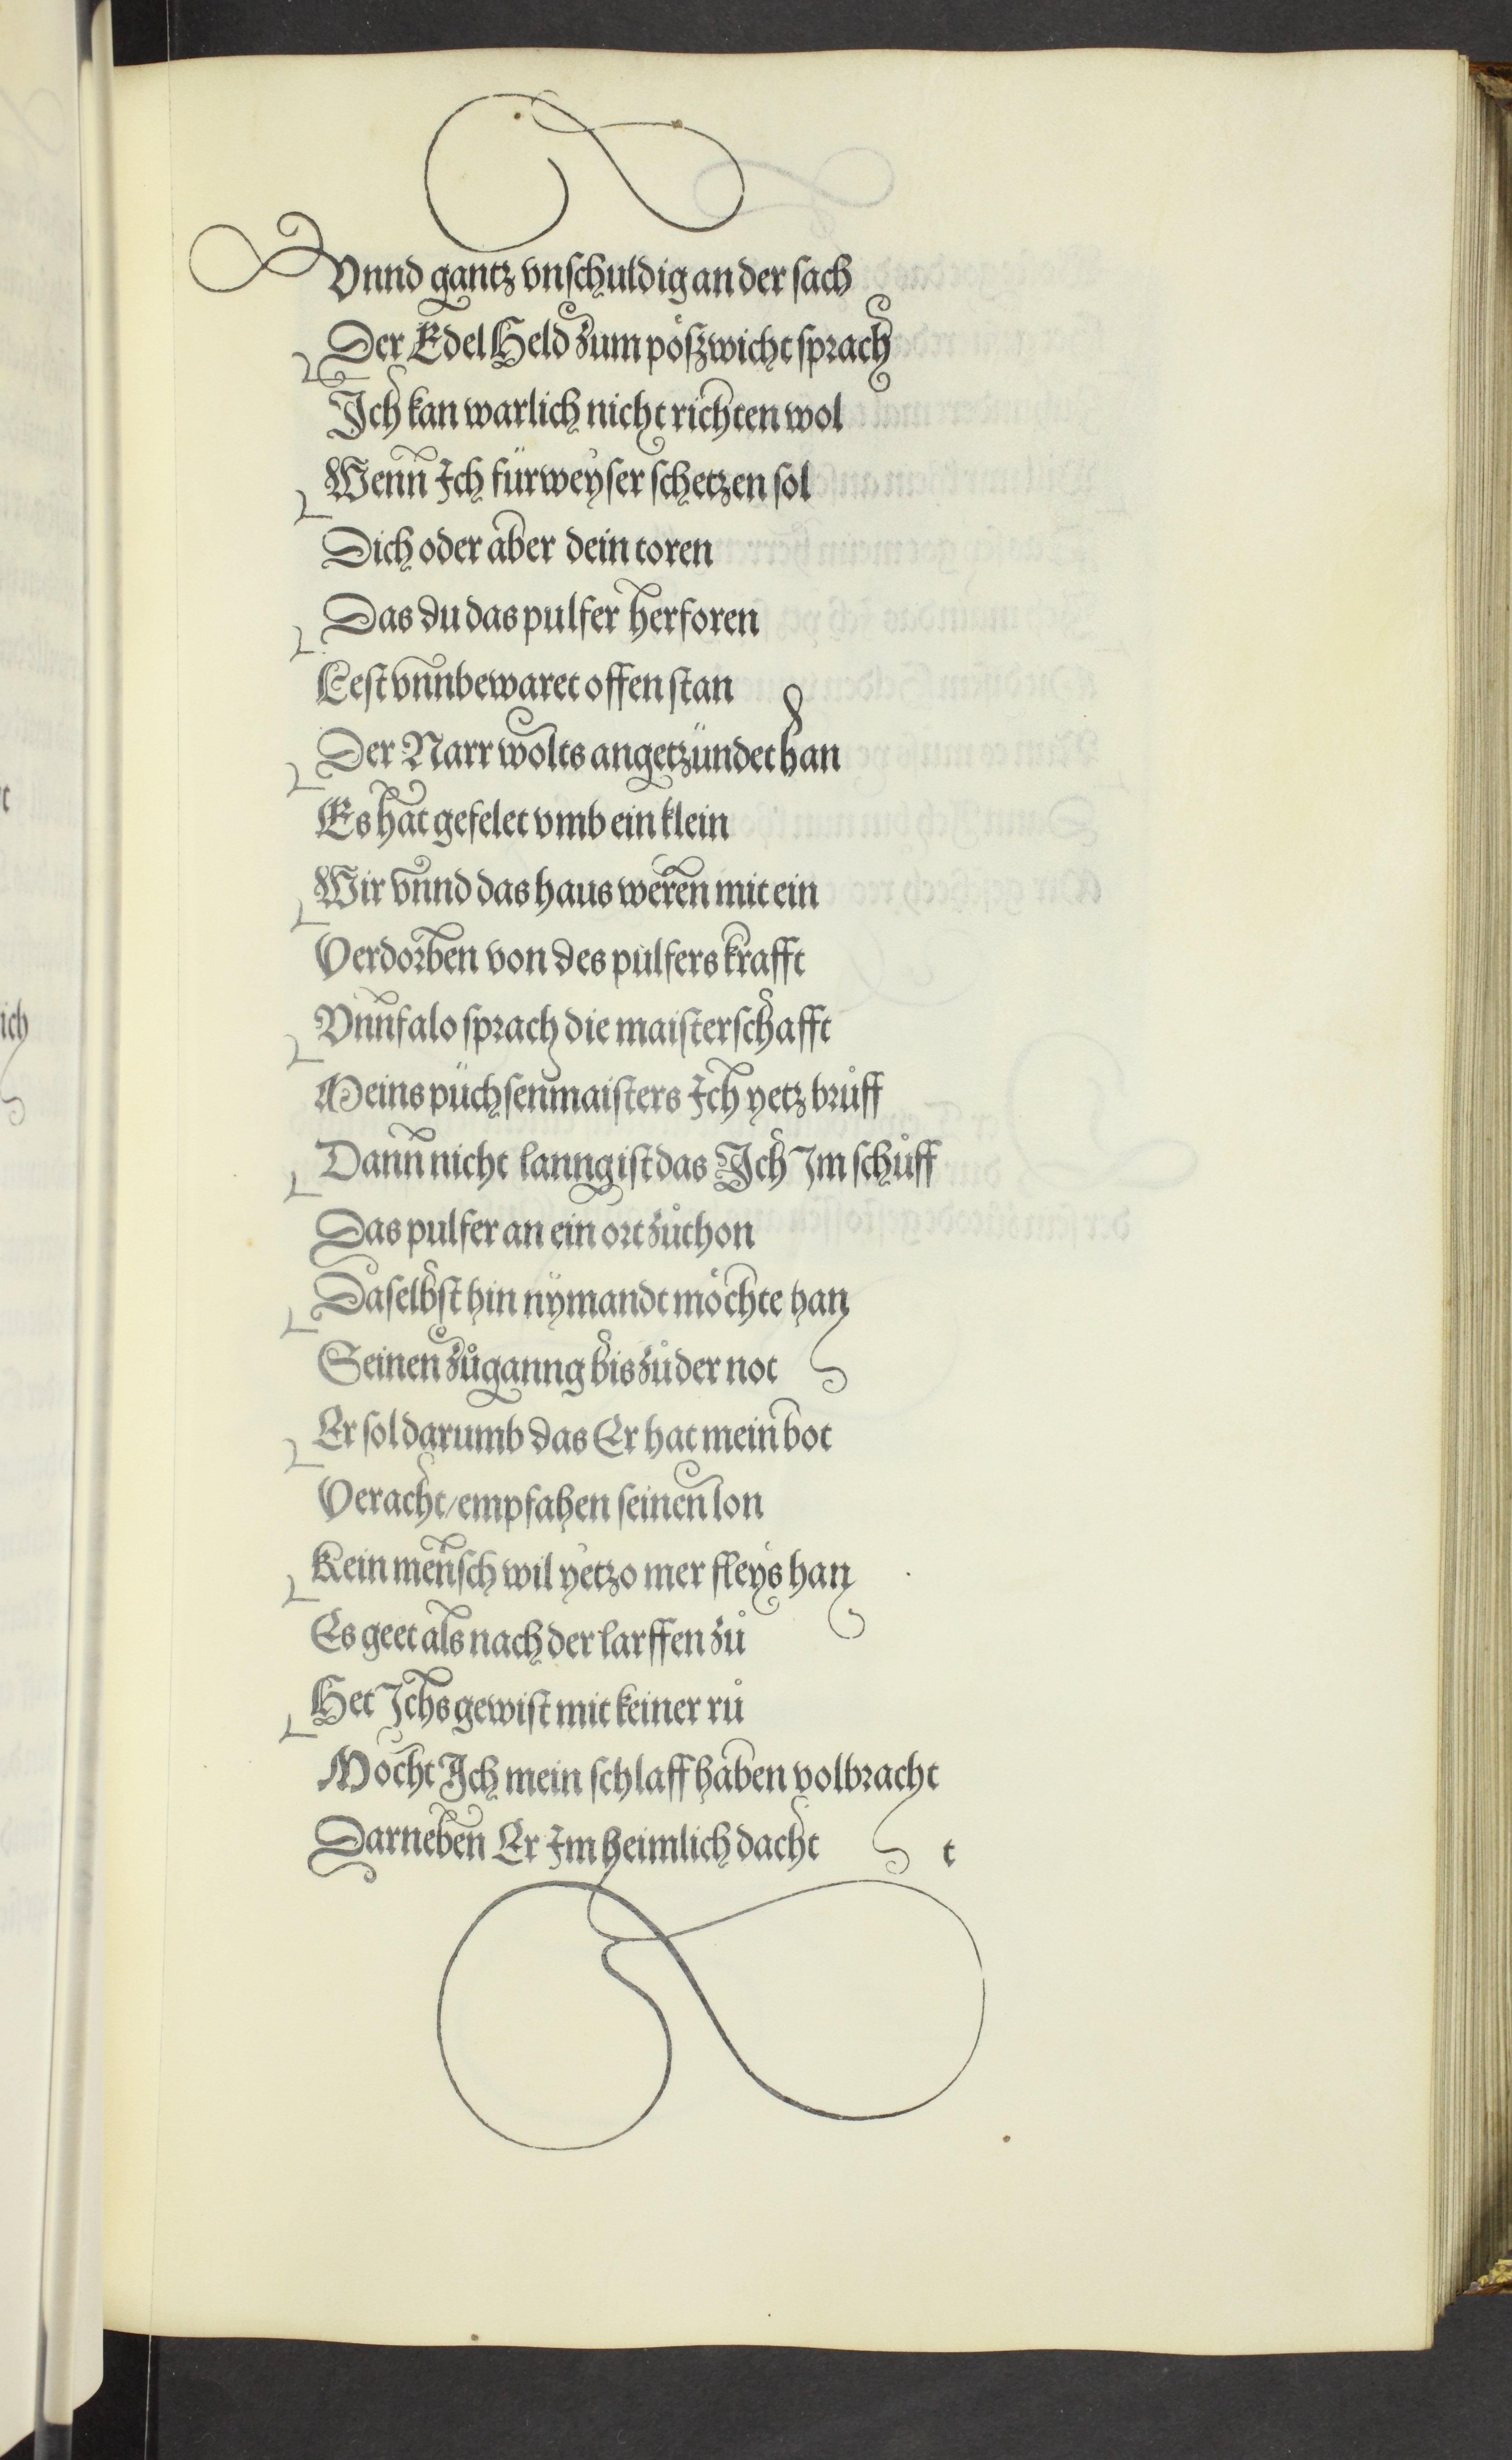 Vnnd gantz vnschuldig an der sach
Der Edel Held zum pößwicht sprach
Ich kan warlich nicht richten wol
Wenn Ich für weyser schetzen sol
Dich oder aber dein toren
Das du das pulfer herforen
Lest vnnbewaret offen stan
Der Narr wolts angetzündet han
Es hat gefelet vmb ein klein
Wir vnnd das haus weren mit ein
Verdorben von des pulfers krafft
Vnnfalo sprach die maisterschafft
Meins püchsenmaisters Ich yetz brůff
Dann nicht lanng ist das Ich Im schůff
Das pulfer an ein ort zůthon
Daselbst hin nymandt möchte han
Seinen zůganng bis zů der not
Er sol darumb das Er hat mein bot
Veracht/empfahen seinen lon
Kein mensch wil yetzo mer fleys han
Es geet als nach der larffen zů
Het Ichs gewist mit keiner rů
Möcht Ich mein schlaff haben volbracht
Darneben Er Im heimlich dacht
t